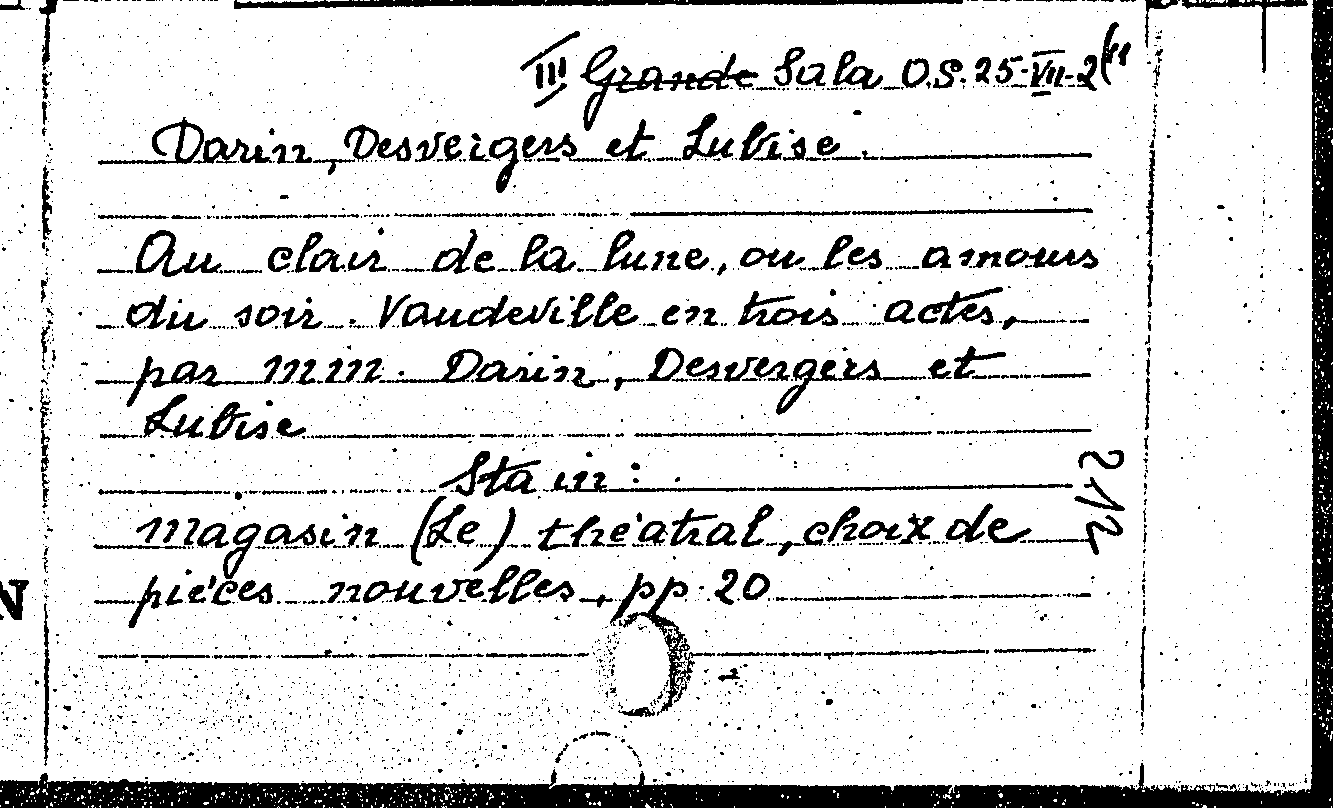 III Grande Sala O.S. 25-VII-2(11
Darin, Desvergers et Lubise.
Au clair de la lune, ou les amours
du soir. Vaudeville en trois actes,
par mm. Darin, Desvergers et
Lubise
Sta in:
magasin (Le) théatral, choix de
pièces nouvelles, pp. 20
212
N